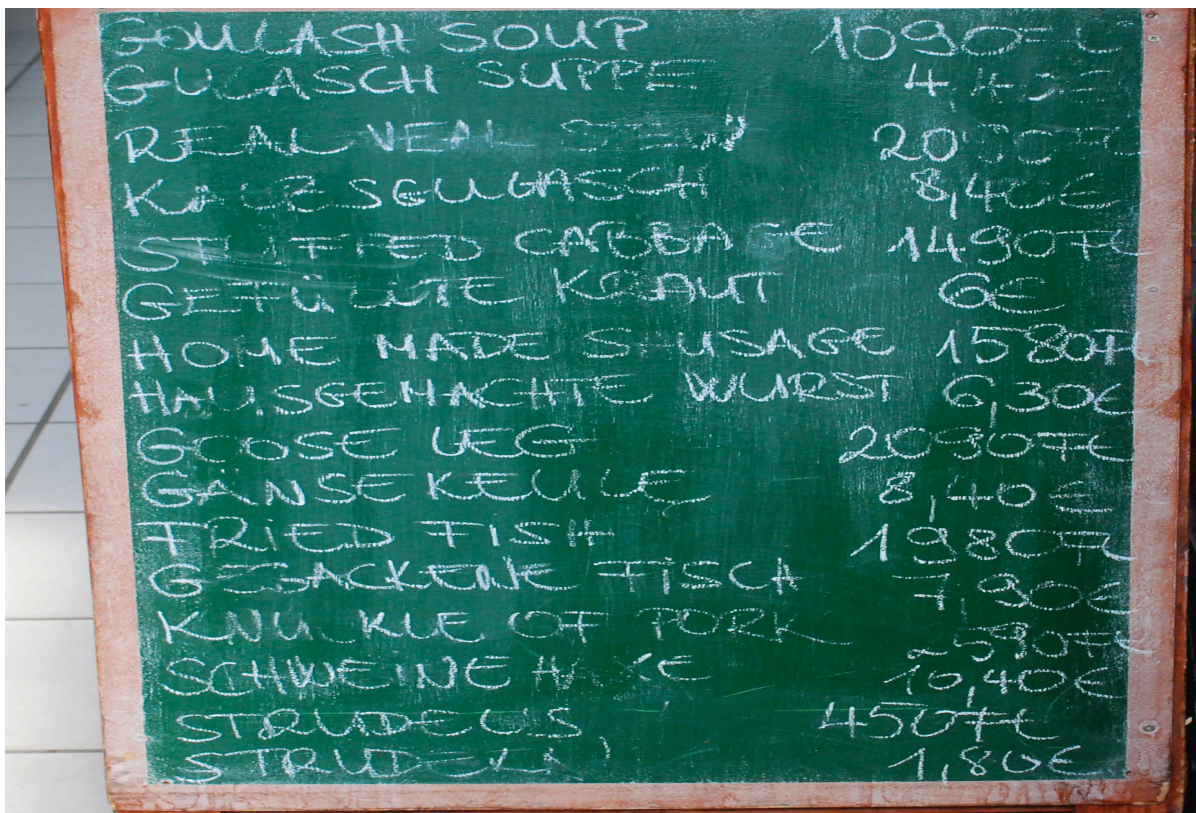 GOULASH SOUP 1090Ft
GULASCH SUPPE
REAL VEAL STEW
KALBSGULGASCH 8,40€
STUFFED CABBAGE 1490Ft
GEFÜLLTE KRAUT 6€
HOME MADE SAUSAGE 1580Ft
HAUSGEMACHTE WURST 6,30€
GOOSE LEG 2090Ft
GÄNSEKEULE 8,40€
FRIED FISH 1980Ft
FISCH 7,90€
KNUCKLE OF PORK 2590Ft
SCHWEINEHAXE 10,40€
STRUDELS 450Ft
1,80€